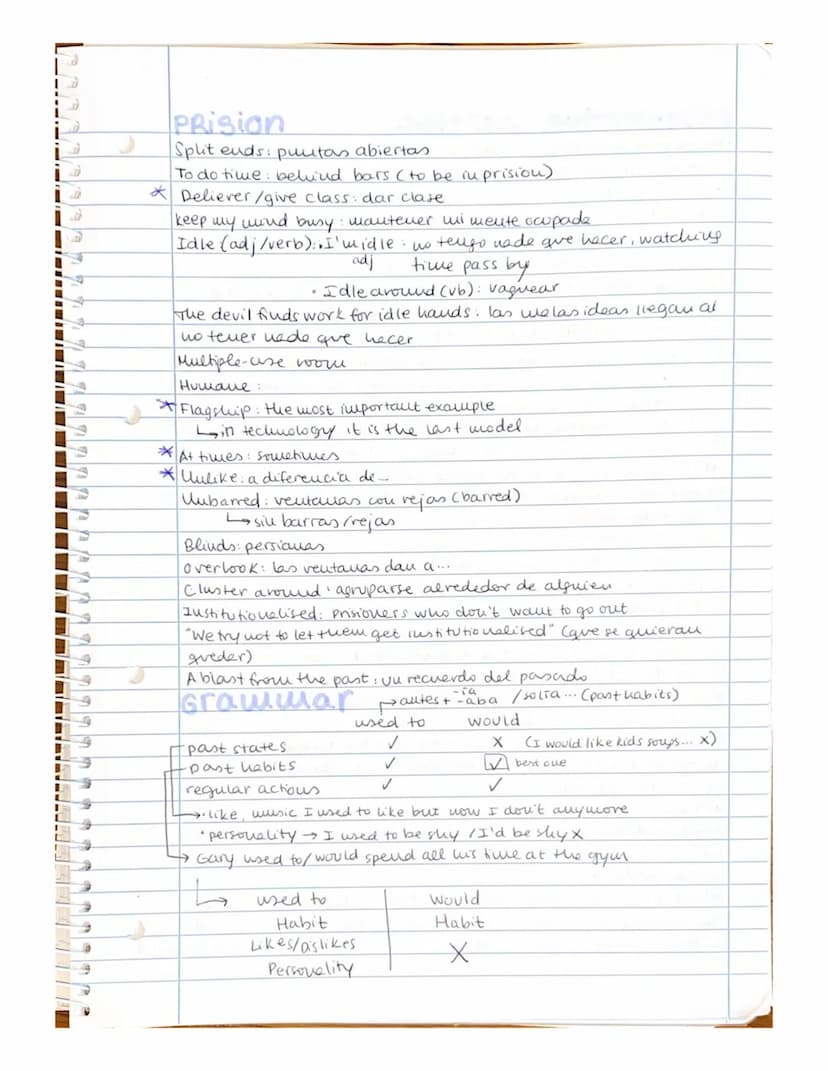 PRision
Split ends: puntas abiertas
To do time: behind bars (to be in prision)
* Deliever/give class: dar clase
keep my mind busy: mantener mi mente ocupada
Idle (adj/verb): • I'm idle: no tengo nada que hacer, watching
adj time pass by
• Idle around (vb): vaguear
The devil finds work for idle hands: las malas ideas llegan al
no tener nada que hacer
Multiple-use room
Humane:
* Flagship: the most important example
↳ in technology it is the last model
* At times: sometimes
* Unlike: a diferencia de...
Unbarred: ventanas con rejas (barred)
↳ sin barras/rejas
Blinds: persianas
Overlook: las ventanas dan a...
Cluster around: agruparse alrededor de alguien
Institutionalised: prisioners who don't want to go out
"We try not to let them get institutionalised" (que se quieran
quedar)
A blast from the past: un recuerdo del pasado
Grammar → antes + -ía -aba /solía... (past habits)
used to would
past states ✓ X (I would like kids soups... X)
past habits ✓ ✓ best one
regular actions ✓ ✓
→ • like, music I used to like but now I don't anymore
• personality → I used to be shy / I'd be shy X
→ Gary used to/would spend all his time at the gym
↳ used to would
Habit Habit
Likes/dislikes X
Personality